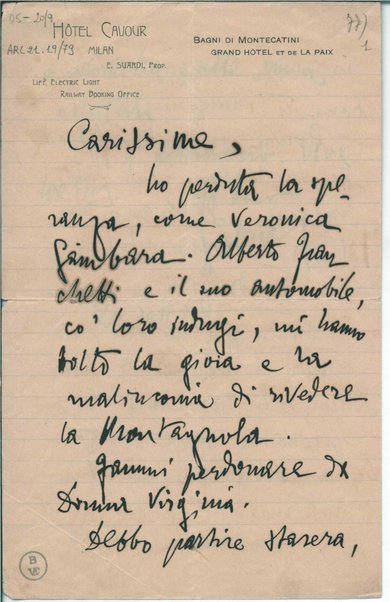 05-20/9
ARC 21. 29/79
HÔTEL CAVOUR
MILAN
E. SUARDI, PROP.
LIFT. ELECTRIC LIGHT
RAILWAY BOOKING OFFICE
BAGNI DI MONTECATINI
GRAND HÔTEL ET DE LA PAIX
77)
1
Carissime,
ho perduta la spe
ranza, come Veronica
Gambara. Alberto Fran
chetti e il suo automobile,
co' loro indugi, mi hanno
tolto la gioia e la
malinconia di rivedere
la Montagnola.
Fammi perdonare da
Donna Virginia.
Debbo partire stasera,
B